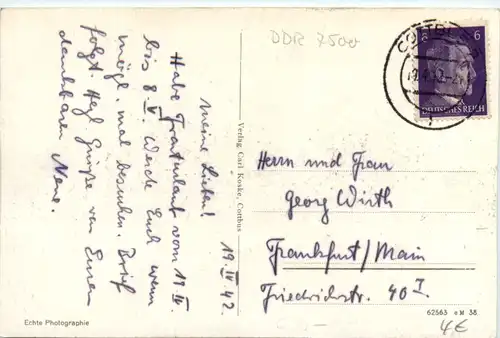 DDR 7500
COTTBUS
6 6
DEUTSCHES REICH
Meine Lieben!
19.IV.42
Habe Fronturlaub vom 18.IV.
bis 8.V. Werde Euch wenn
mögl. mal besuchen. Brief
folgt. Hzl. Grüße von Eurem
dankbaren
Verlag Carl Koske, Cottbus
Herrn und Frau
Georg Wirth
Frankfurt/Main
Friedrichstr. 40 I
Echte Photographie
62563 e M 38
4€